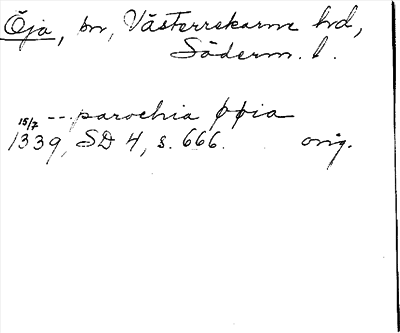 Öja, sn, Västerrekarne hd,
Söderm. l.
--- parochia øøia
15/7
1339, SD 4, s. 666. orig.